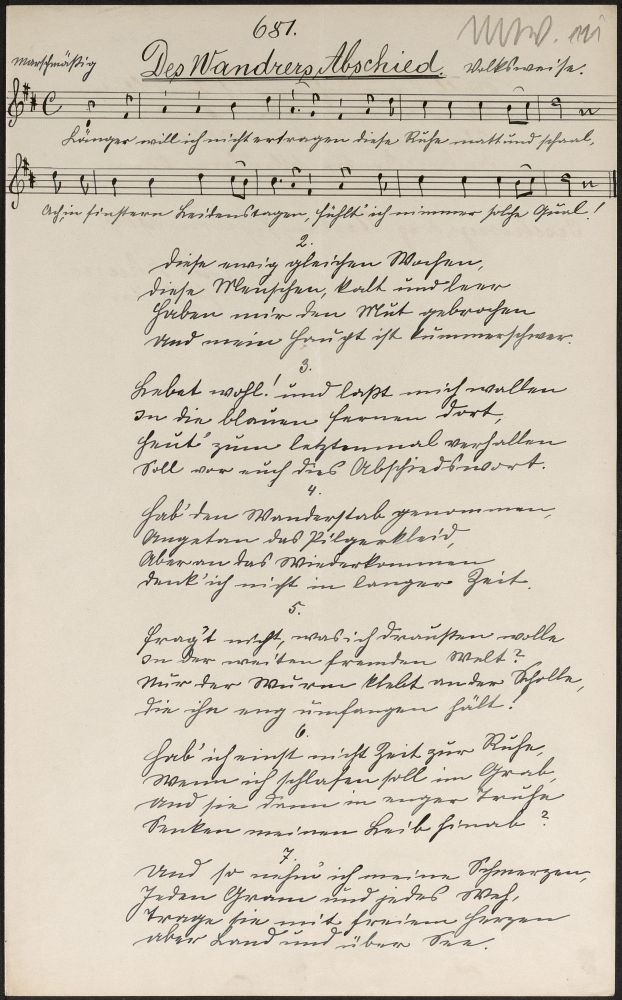 681.
Des Wandrers Abschied.
Marschmäßig
Volksweise.
Länger will ich nicht ertragen diese Ruhe matt und schaal,
Ach, in finstern Leidenstagen, fühlt' ich nimmer solche Qual!
2.
Diese ewig gleichen Wochen,
Diese Menschen, kalt und leer
Haben mir den Mut gebrochen
Und mein Haupt ist kummerschwer.
3.
Lebet wohl! und laßt mich wallen
In die blauen Fernen dort,
Heut' zum letztenmal verhallen
Soll vor euch dies Abschiedswort.
4.
Hab' den Wanderstab genommen,
Angetan das Pilgerkleid,
Aber an das Wiederkommen
Denk' ich nicht in langer Zeit.
5.
Frag't nicht, was ich draußen wolle
In der weiten fremden Welt?
Nur der Wurm klebt an der Scholle,
Die ihn eng umfangen hält!
6.
Hab' ich einst nicht Zeit zur Ruhe,
Wenn ich schlafen soll im Grab,
Und sie dann in enger Truhe
Senken meinen Leib hinab?
7.
Und so nehm' ich meine Schmerzen,
Jeden Gram und jedes Weh,
Trage sie mit freiem Herzen
Über Land und über See.